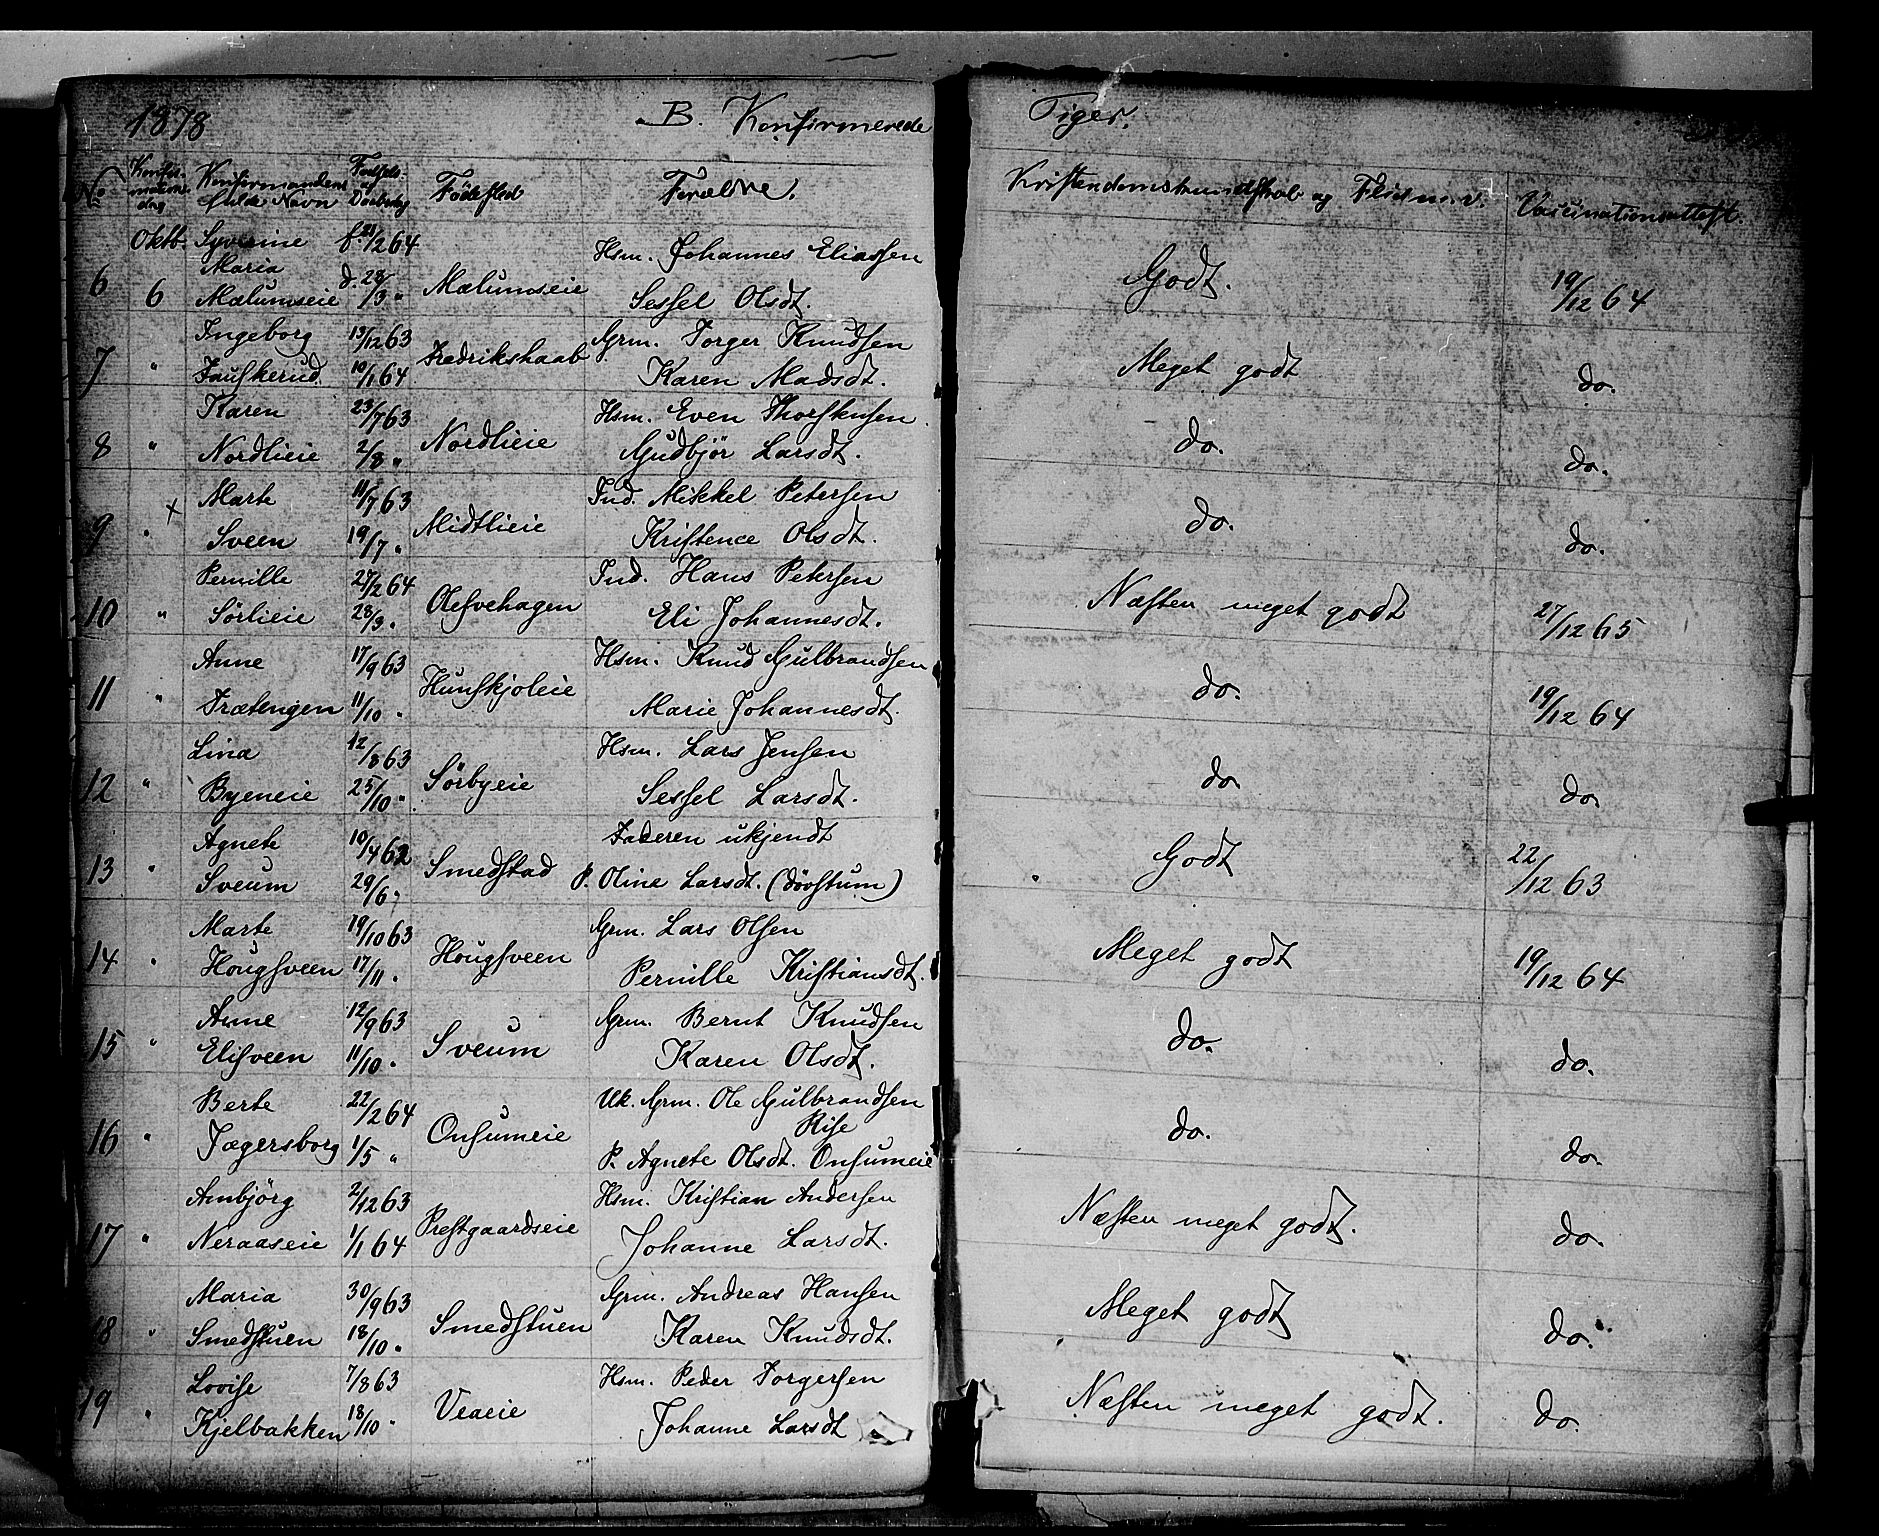 1878 B. Konfirmerede Piger.
No Konfirmations dag Konfirmandens fulde Navn Fødsels og Daabsdag Fødested Forældre. Kristendomskundskab og Flid m. v. Vaccinationsattest.
Oktb. Syverine f. 21/2 64 Hsm. Johannes Eliassen
Maria Godt. 19/12 64
6 6 Mælumseie d. 28/3 " Mælumseie Sessel Olsdt.
Ingeborg 13/12 63 Grm. Torger Knudsen
7 " Fauskerud 10/1 64 Fredrikshaab Karen Madsdt. Meget godt do.
Karen 23/7 63 Hsm. Even Thorstensen
8 " Nordlieie 2/8 " Nordlieie Gudbjør Larsdt. do. do.
Marte 11/7 63 Ind. Mikkel Petersen
9 " x Sveen 19/7 " Midtlieie Kristence Olsdt. do. do.
Pernille 27/2 64 Ind. Hans Petersen
10 " Sörlieie 28/3 " Olefvehagen Eli Johannesdt. Næsten meget godt 27/12 65
Anne 17/9 63 Hsm. Knud Gulbrandsen
11 " Trætengen 11/10 " Hunskjoleie Marie Johannesdt. do. 19/12 64
Lina 12/8 63 Hsm. Lars Jensen
12 " Byeneie 25/10 " Sörbyeie Sessel Larsdt. do. do.
Agnete 10/4 62 Faderen ukjendt
13 " Sveum 29/6 " Smedstad P. Oline Larsdt. (døvstum) Godt 22/12 63
Marte 19/10 63 Grm. Lars Olsen
14 " Hougsveen 17/11 " Hougsveen Pernille Kristiansdt. Meget godt 19/12 64
Anne 12/9 63 Grm. Bernt Knudsen
15 " Elisveen 11/10 " Sveum Karen Olsdt. do. do.
Berte 22/2 64 Uk. Grm. Ole Gulbrandsen
Rise
16 " Jægersborg 1/5 " Onsumeie P. Agnete Olsdt. Onsumeie do. do.
Anbjörg 2/12 63 Hsm. Kristian Andersen
17 " Neraaseie 1/1 64 Prestgaardseie Johanne Larsdt. Næsten meget godt. do.
Maria 30/9 63 Grm. Andreas Hansen
18 " Smedstuen 18/10 " Smedstuen Karen Knudsdt. Meget godt do.
Lovise 7/8 63 Hsm. Peder Torgersen
19 " Kjelbakken 18/10 " Veaeie Johanne Larsdt Næsten meget godt. do.